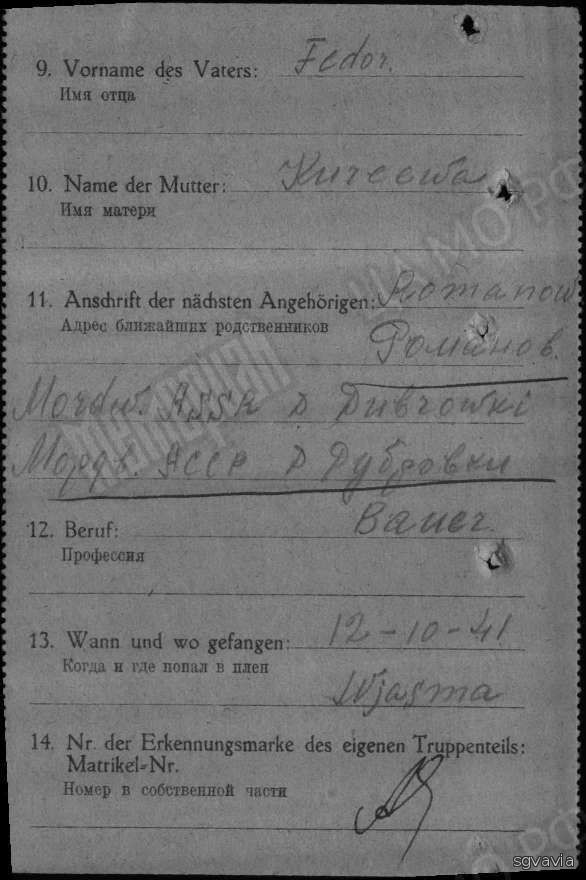 9. Vorname des Vaters: Fedor.
Имя отца
10. Name der Mutter:
Имя матери
11. Anschrift der nächsten Angehörigen: Romanow
Адрес ближайших родственников Романов.
Mordw. ASSR D Dubrowki
Мордв. АССР Д Дубровки
12. Beruf: Bauer.
Профессия
13. Wann und wo gefangen: 12-10-41
Когда и где попал в плен
Wjasma
14. Nr. der Erkennungsmarke des eigenen Truppenteils:
Matrikel-Nr.
Номер в собственной части
ЦА МО РФ
sgvavia